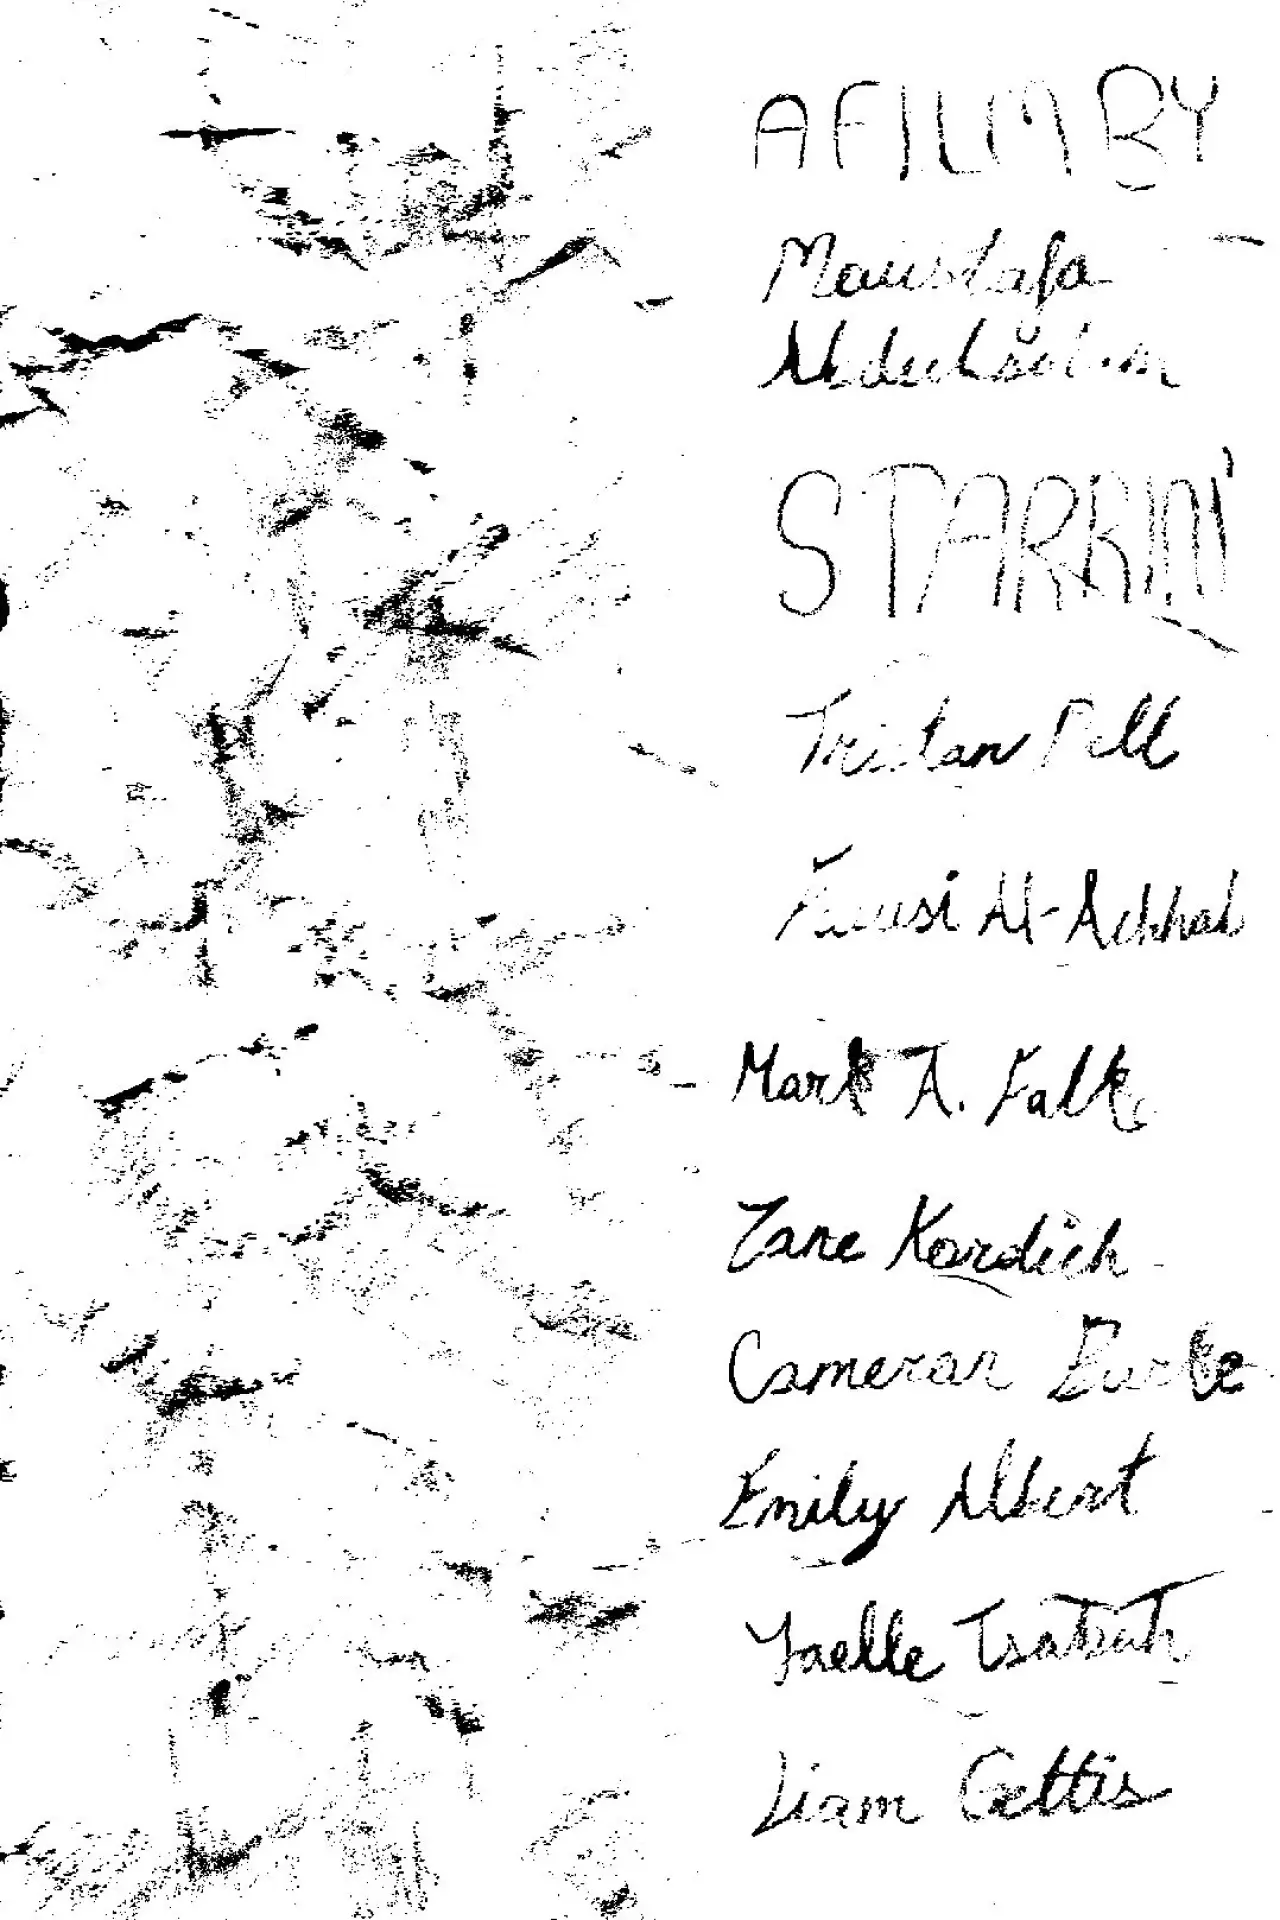 A FILM BY
Moustafa
Abdelsalam
STARRIN'
Tristan Pell
Al-Achhab
Mark A. Falk
Zane Kordich
Cameran Burke
Emily Albert
Yaelle
Liam Gettis